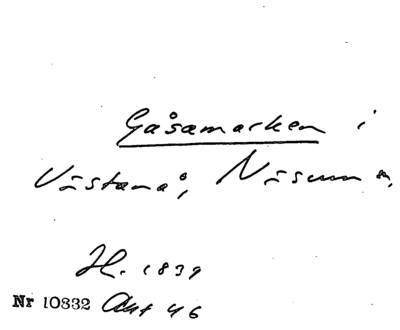 Gåsamarken i
Västanå, Näsum s,
H. 1839
Nr 10832 Akt 46